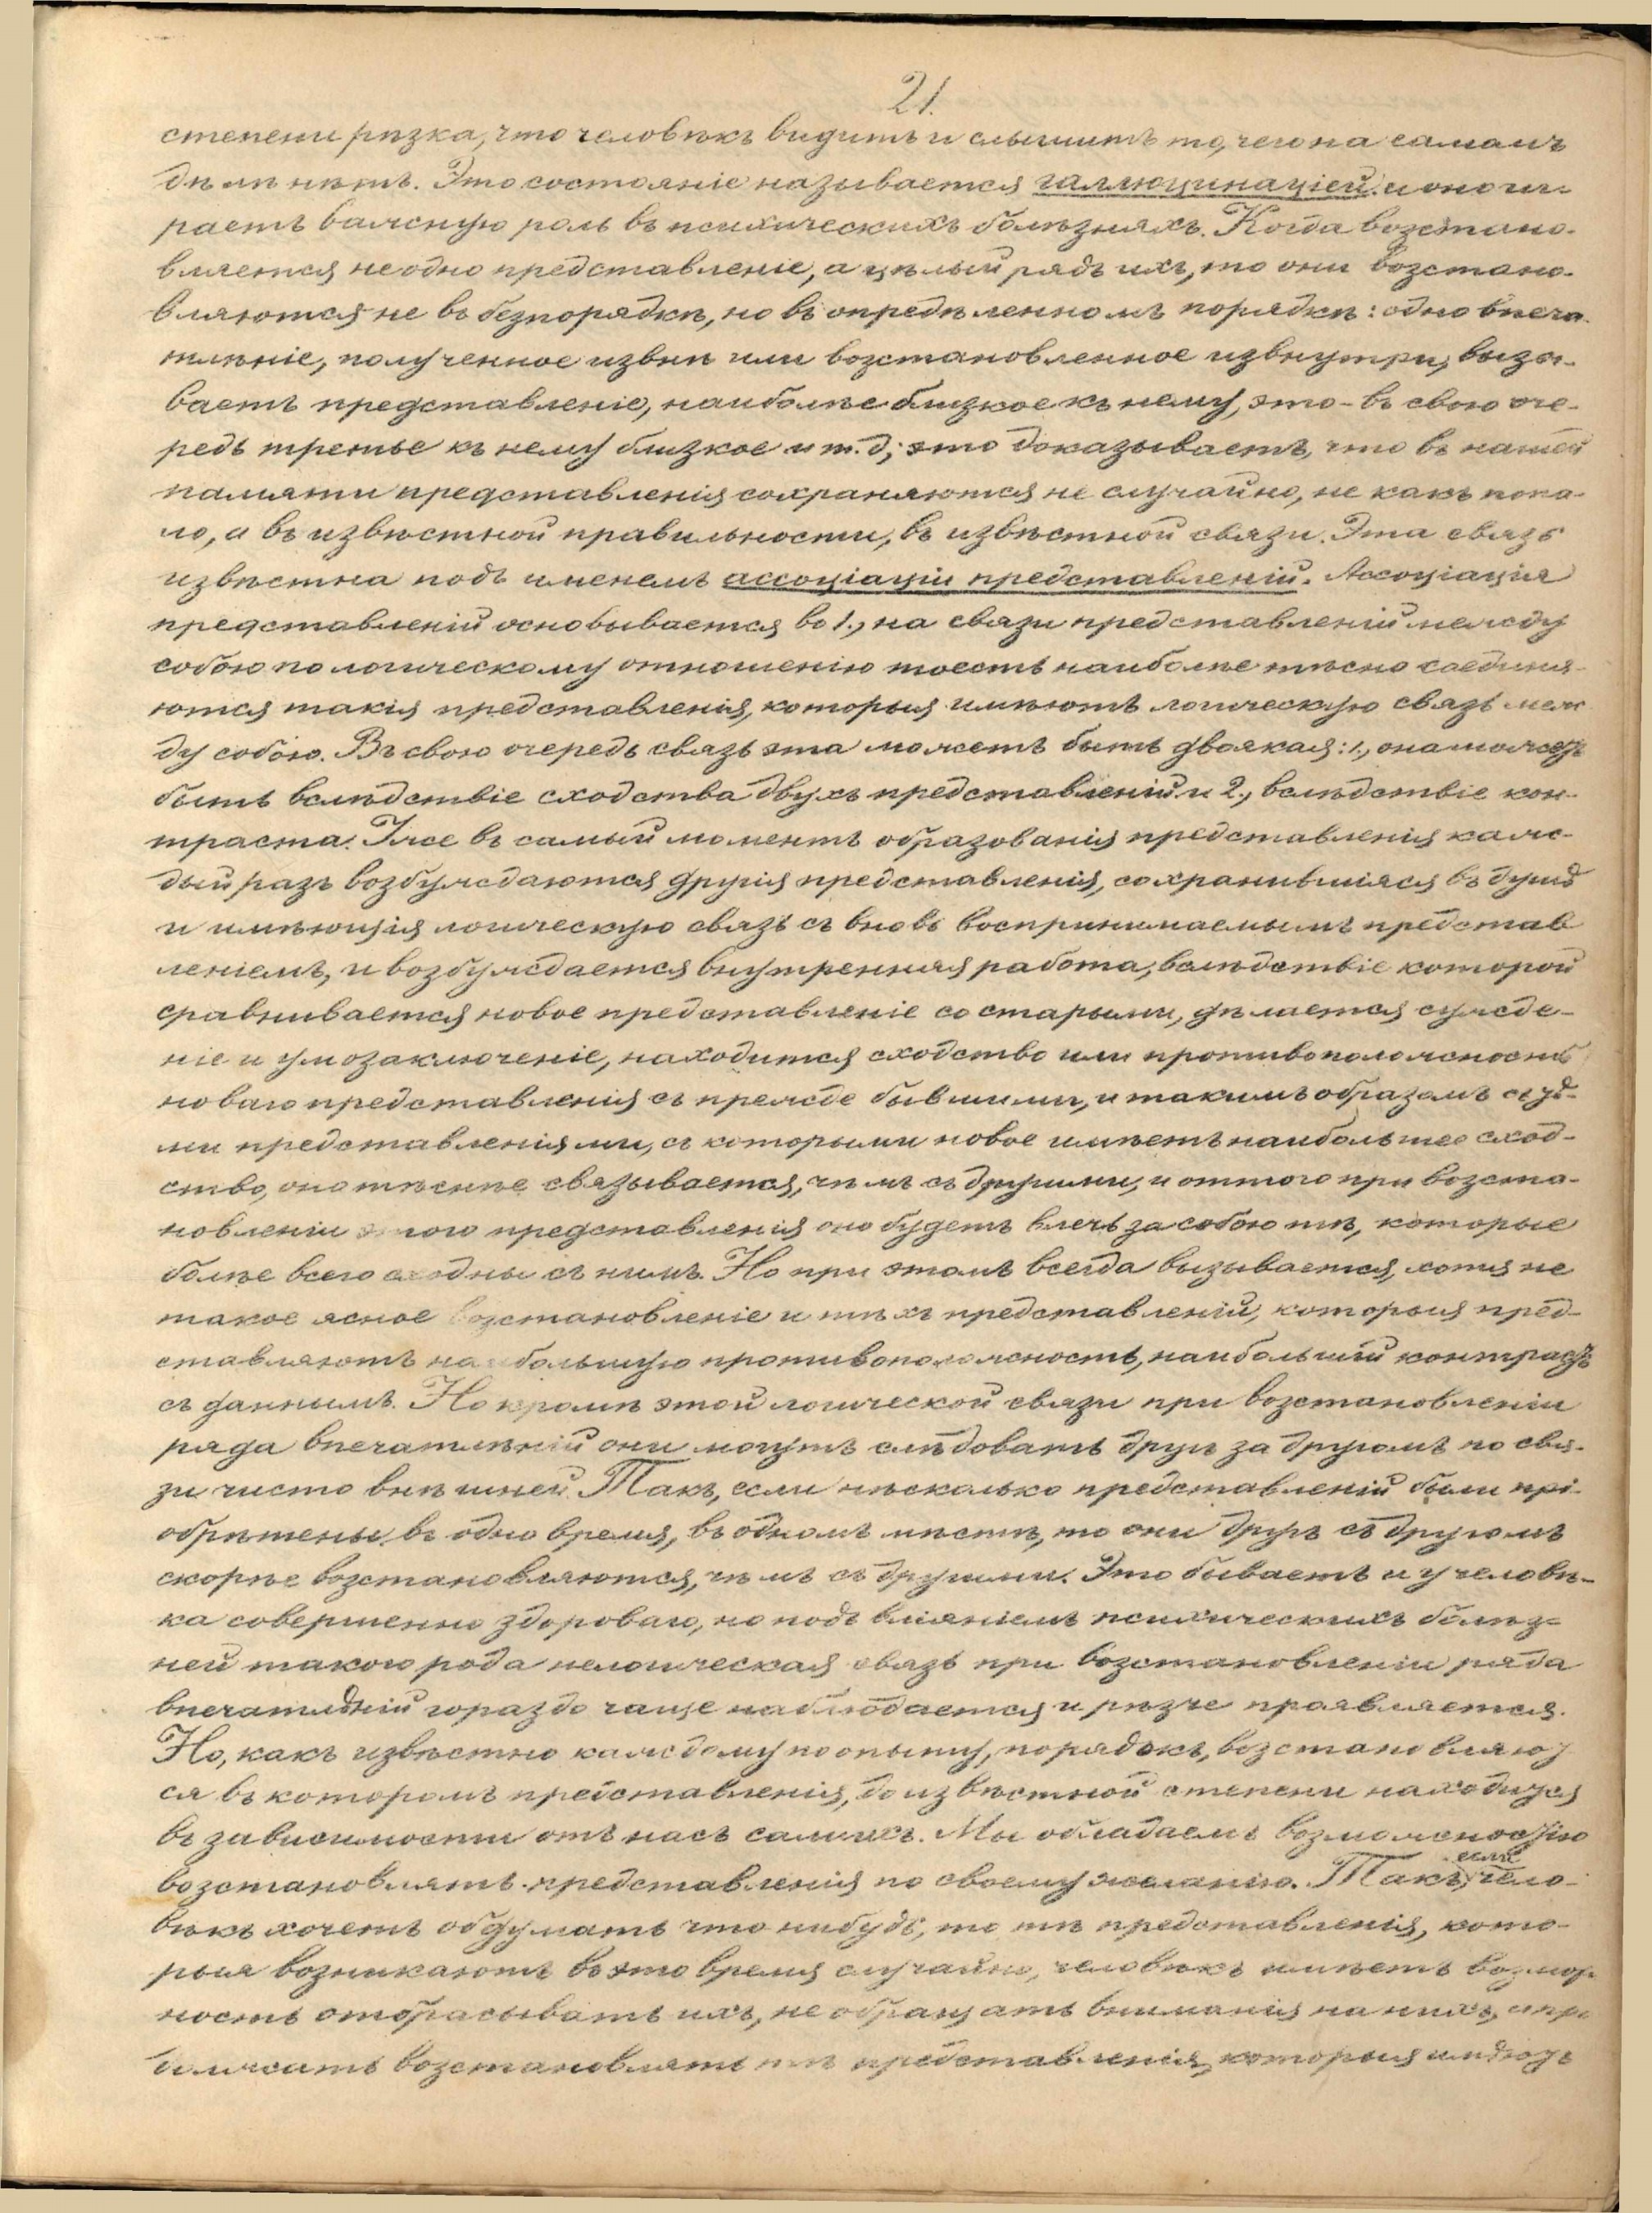 21.
степени рѣзка, что человѣкъ видитъ и слышитъ то, чего на самомъ
дѣлѣ нѣтъ. Это состояніе называется галлюцинаціей. и оно иг-
раетъ важную роль въ психическихъ болѣзняхъ. Когда возстано-
вляется не одно представленіе, а цѣлый рядъ ихъ, то они возстано-
вляются не въ безпорядкѣ, но въ опредѣленномъ порядкѣ: одно впеча-
тлѣніе, полученное извнѣ или возстановленное извнутри, вызы-
ваетъ представленіе, наиболѣе близкое къ нему, это - въ свою оче-
редь третье къ нему близкое и т. д; это доказываетъ, что въ нашей
памяти представленія сохраняются не случайно, не какъ попа-
ло, а въ извѣстной правильности, въ извѣстной связи. Эта связь
извѣстна подъ именемъ ассоціаціи представленій. Ассоціація
представленій основывается во 1., на связи представленій между
собою по логическому отношенію тоесть наиболѣе тѣсно соединя-
ются такія представленія, которыя имѣютъ логическую связь меж
ду собою. Въ свою очередь связь эта можетъ быть двоякая: 1., она можетъ
быть вслѣдствіе сходства двухъ представленій и 2., вслѣдствіе кон-
траста. Уже въ самый моментъ образованія представленія каж-
дый разъ возбуждаются другія представленія, сохранившіяся въ душѣ
и имѣющія логическую связь съ вновь воспринимаемымъ представ
леніемъ, и возбуждается внутренняя работа, вслѣдствіе которой
сравнивается новое представленіе со старыми, дѣлается сужде-
ніе и умозаключеніе, находится сходство или противоположность
новаго представленія съ прежде бывшими, и такимъ образомъ съ тѣ-
ми представленіями, съ которыми новое имѣетъ наибольшее сход-
ство, оно тѣснѣе связывается, чѣмъ съ другими, и оттого при возста-
новленіи этого представленія оно будетъ влечь за собою тѣ, которые
болѣе всего сходны съ нимъ. Но при этомъ всегда вызывается, хотя не
такое ясное возстановленіе и тѣхъ представленій, которыя пред-
ставляютъ наибольшую противоположность, наибольшій контрастъ
съ даннымъ. Но кромѣ этой логической связи при возстановленіи
ряда впечатлѣній они могутъ слѣдовать другъ за другомъ по свя-
зи чисто внѣшней. Такъ, если нѣсколько представленій были прі-
обрѣтены въ одно время, въ одномъ мѣстѣ, то они другъ съ другомъ
скорѣе возстановляются, чѣмъ съ другими. Это бываетъ и у человѣ-
ка совершенно здороваго, но подъ вліяніемъ психическихъ болѣз-
ней такого рода нелогическая связь при возстановленіи ряда
впечатлѣній гораздо чаще наблюдается и рѣзче проявляется.
Но, какъ извѣстно каждому по опыту, порядокъ, возстановляют
ся въ которомъ представленія, до извѣстной степени находится
въ зависимости отъ насъ самихъ. Мы обладаемъ возможностію
возстановлять представленія по своему желанію. Такъ, если чело-
вѣкъ хочетъ обдумать что нибудь, то тѣ представленія, кото-
рыя возникаютъ въ это время случайно, человѣкъ имѣетъ возмож
ность отбрасывать ихъ, не обращать вниманія на нихъ, и про
должать возстановлять тѣ представленія, которыя имѣютъ